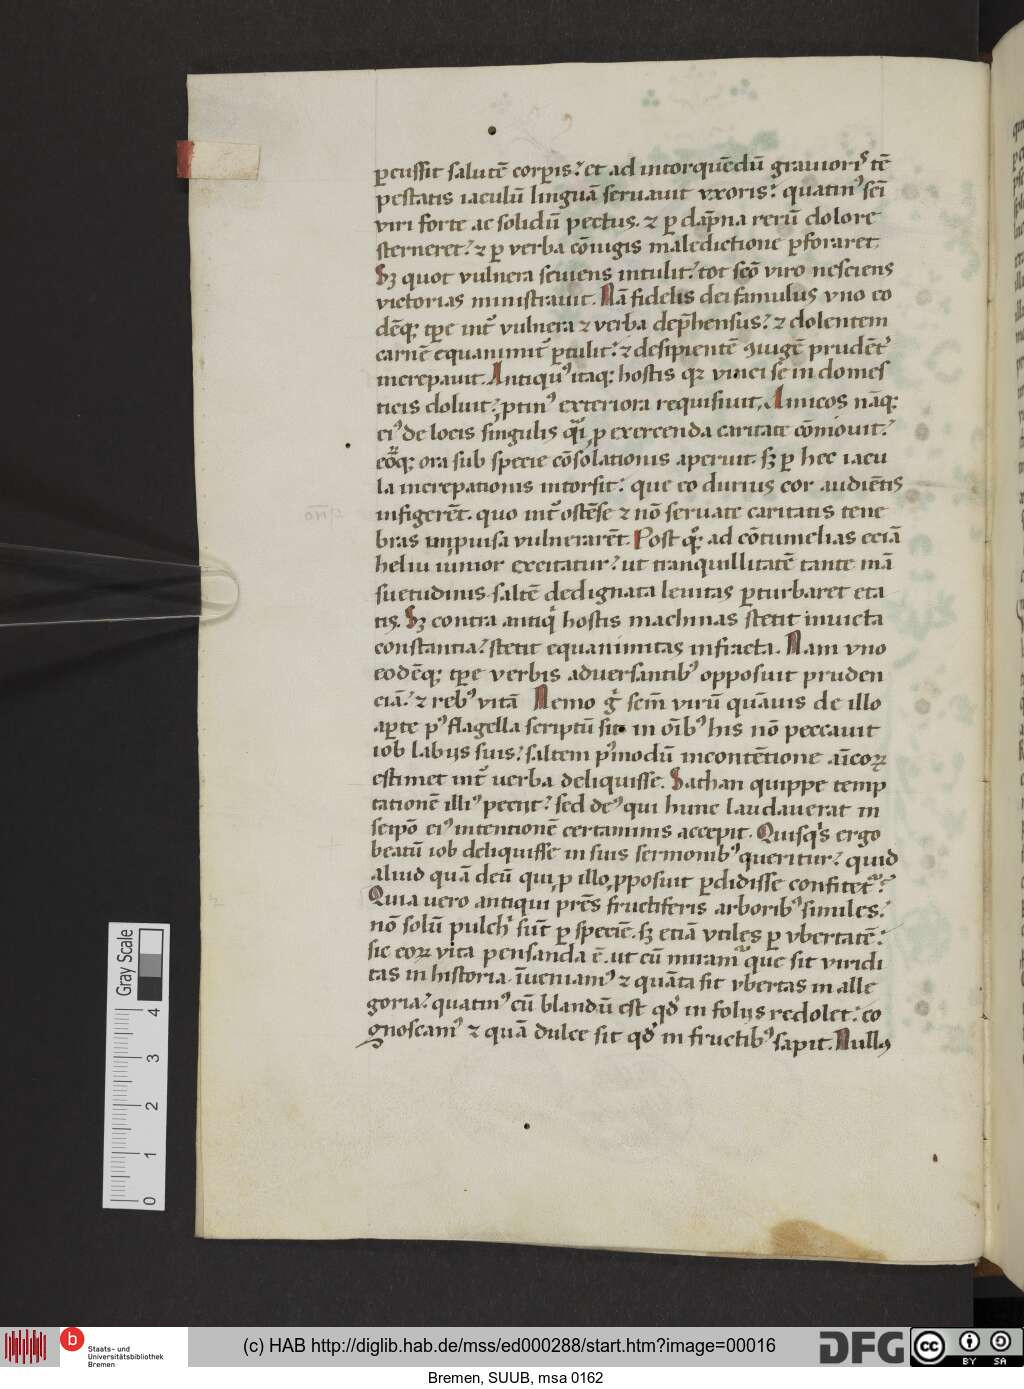 pcussit salutē corpis? et ad intorquēdū grauioris tē
pestatis iaculū linguā seruauit vxoris? quatin⁹ sc̄i
viri forte ac solidū pectus. ⁊ p dāpna rerū dolore
sterneret? ⁊ p verba cōiugis maledictione pforaret.
Sꝫ quot vulnera seuiens intulit? tot scō viro nesciens
victorias ministrauit. Nā fidelis dei famulus vno eo
dēqꝫ tpe int̄ vulnera ⁊ verba dep̄hensus? ⁊ dolentem
carnē equanimit̄ ptulit? ⁊ desipientē ꝯiugē prudēt̄
increpauit. Antiqu⁹ itaqꝫ hostis qꝛ vinci se in domes
ticis doluit? ꝓtin⁹ exteriora requisiuit. Amicos nāqꝫ
ei⁹ de locis singulis q̄i ꝓ exercenda caritate cōmouit?
eoꝝqꝫ ora sub specie cōsolationis aperuit sꝫ p hec iacu
la increpationis intorsit? que eo durius cor audiētis
infigerēt. quo int̄ ostēse ⁊ nō seruate caritatis tene
bras inpuisa vulnerarēt. Post q̄ꝫ ad cōtumelias eciā
heliu iunior excitatur? ut tranquillitatē tante mā
suetudinis saltē dedignata leuitas pturbaret eta
tis. Sꝫ contra antiqⁱ hostis machinas stetit inuicta
constantia? stetit equanimitas infracta. Nam vno
eodēqꝫ tpe verbis aduersantib⁹ opposuit pruden
ciā? ⁊ reb⁹ vitā Nemo gͥ scm̄ virū quāuis de illo
apte p⁹ flagella scriptū sit in oīb⁹ his nō peccauit
iob labijs suis? saltem p⁹modū incontētione aīcoꝝ
estimet int̄ verba deliquisse. Sathan quippe temp
tationē illi⁹ pecijt? sed de⁹ qui hunc laudauerat in
seipō ei⁹ intentionē certaminis accepit. Quisqͥs ergo
beatū iob deliquisse in suis sermonib⁹ queritur? quid
aliud quā deū qui ꝓ illo ꝓposuit pdidisse confitet᷑?
Quia uero antiqui prēs fructiferis arborib⁹ similes?
nō solū pulchͥ sūt p speciē. sꝫ etiā vtiles p vbertatē?
sic eoꝝ vita pensanda ē. ut cū miram᷑ que sit viridi
tas in historia. īueniam⁹ ⁊ quāta sit vbertas in alle
goria? quatin⁹ cū blandū est qđ in folijs redolet? co
gnoscam⁹ ⁊ quā dulce sit qđ in fructib⁹ sapit. Nullꝰ
Gray Scale
0 1 2 3 4
b Staats- und
Universitätsbibliothek
Bremen
(c) HAB http://diglib.hab.de/mss/ed000288/start.htm?image=00016
DFG
cc BY SA
Bremen, SUUB, msa 0162